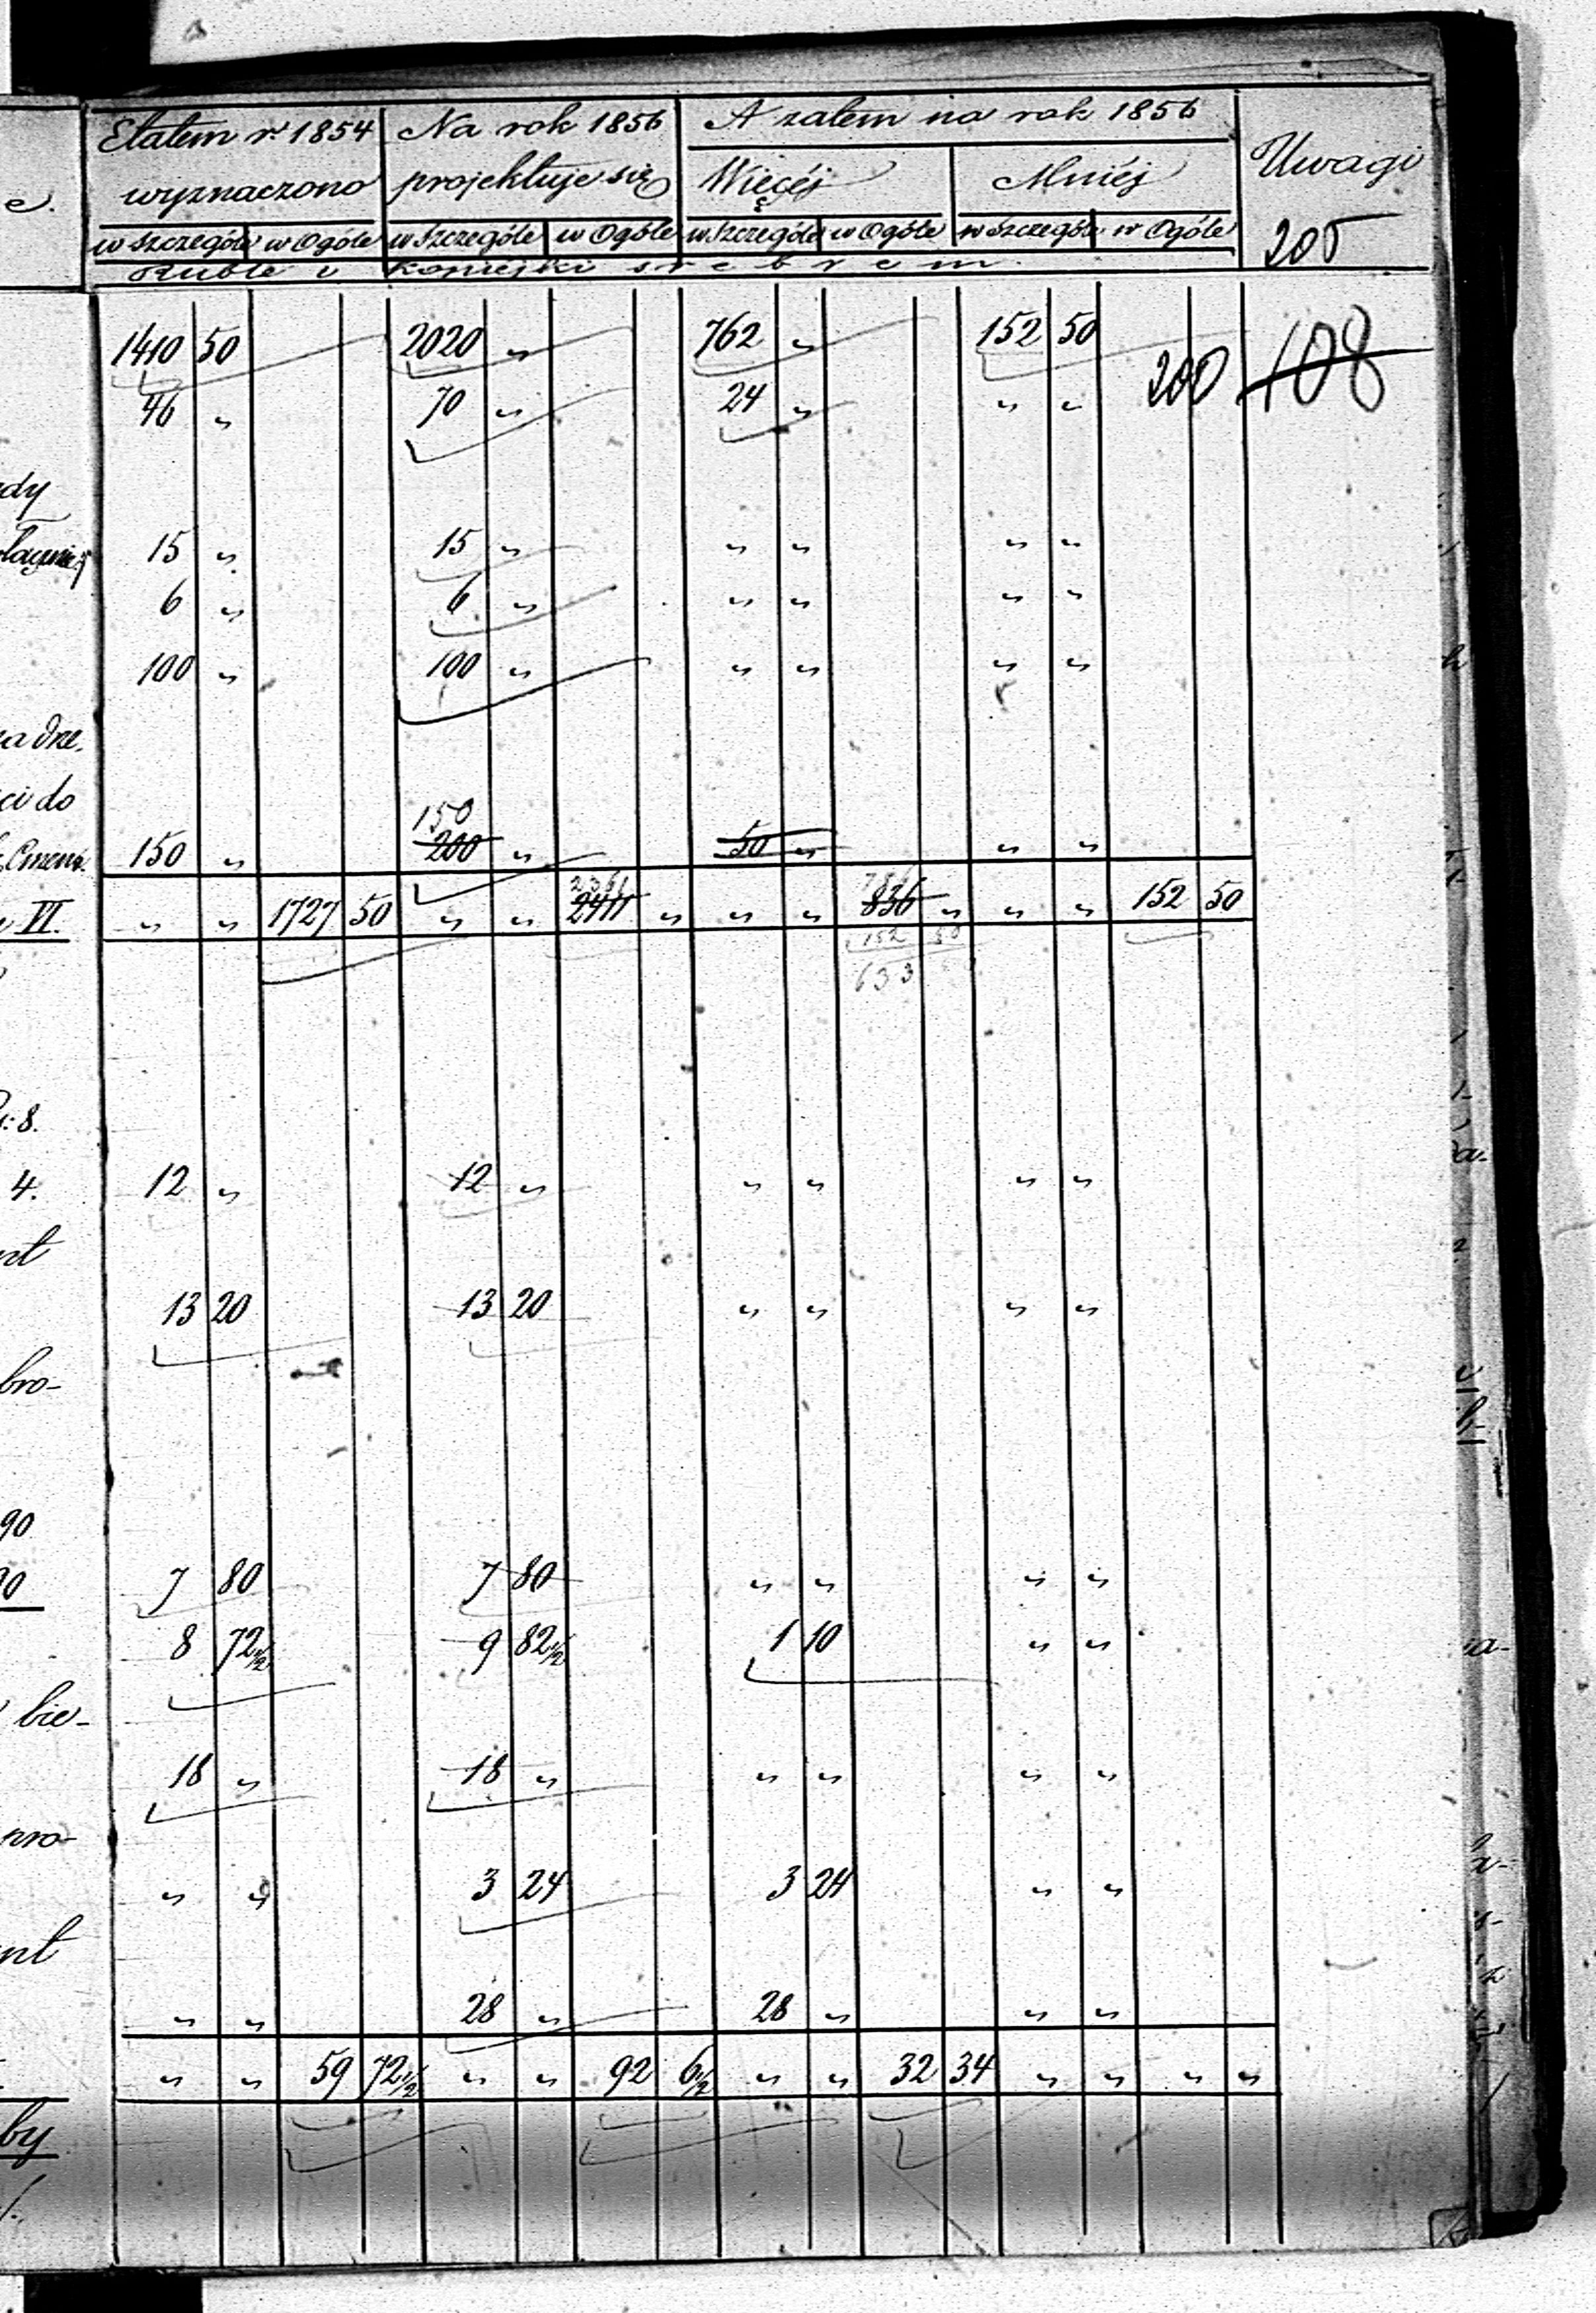 Etatem r. 1854 Na rok 1856 A zatem na rok 1856 Uwagi
wyznaczono projektuje się Więcéj Mniéj
e.
w szczególe w Ogóle w Szczególe w Ogóle w Szczególe w Ogóle w Szczególe w Ogóle 205
Ruble i kopiejki srebrem.
1410 50 2020 " 762 " 152 50 200 108
46 " 70 " 24 " " "
dy
15 " 15 " " " " "
6 " 6 " " " " "
100 " 100 " " " " "
ci do
150
150 " 200 " 50 " " "
2361 786
VI. " " 1727 50 " " 2411 " " " 836 " " " 152 50
152 50
633
8.
4. 12 " 12 " " " " "
nt
13 20 13 20 " " " "
bro-
90
7 80 7 80 " " " "
8 72 1/2 9 82 1/2 1 10 " "
bie-
18 " 18 " " " " "
pro-
" " 3 24 3 24 " "
nt
" " 28 " 28 " " "
" " 59 72 1/2 " " 92 6 1/2 " " 32 34 " " " "
by